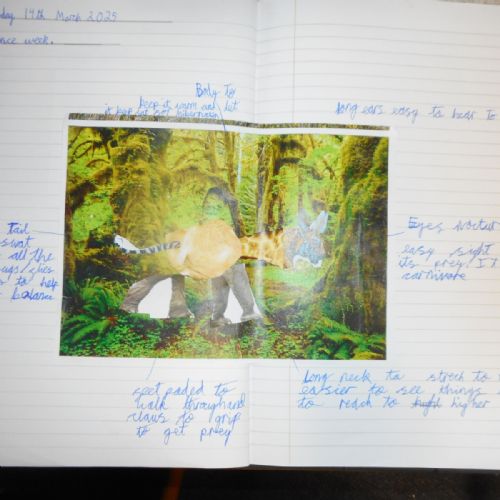 day 19th March 2025
nce week.
Body to
keep it warm and let
it for
Long ears easy to hear to
Tail
swat
all the
to help
balance
Eyes
easy sight
its prey It
carnivore
feet paded to
walk through and
claws to grip
to get prey
Long neck to strech to
easier to see things
to reach to higher